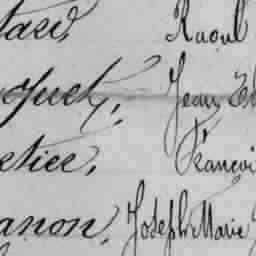 tard, Raoul
oquet, Jean Eh
etiee, Francoi
anon, Joseph Marie